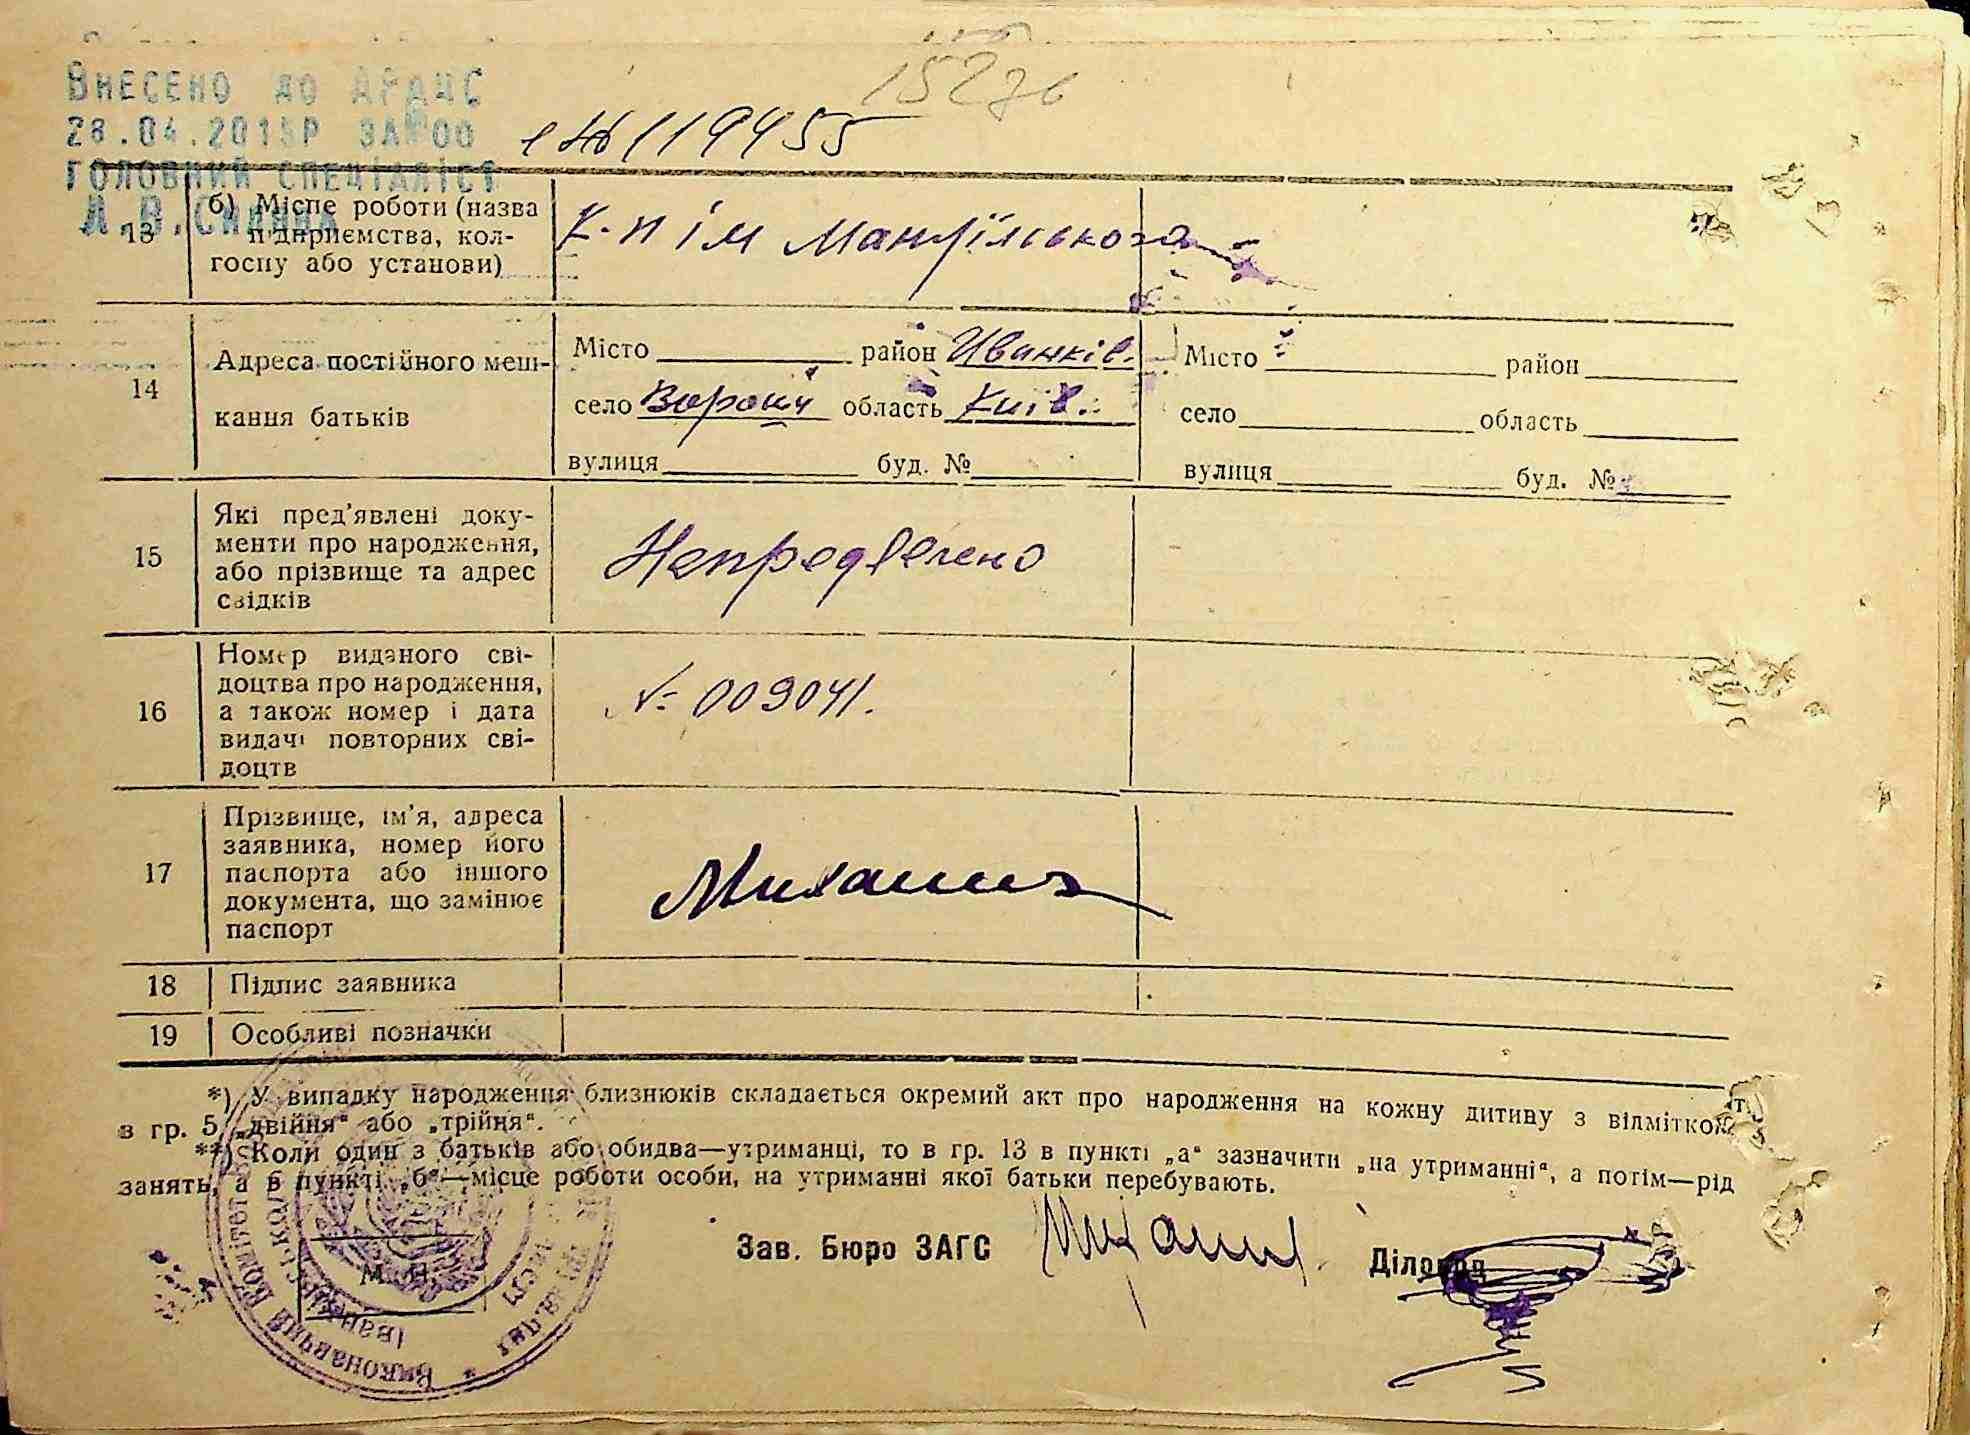 15276
ВНЕСЕНО ДО АРАЧС
28.04.2015Р ЗА
ГОЛОВНИЙ СПЕЦІАЛІСТ
119455
13
б) Місце роботи (назва
підприємства, кол-
госпу або установи)
К-п ім Мануїлського
14
Адреса постійного меш-
кання батьків
Місто район Иванків.
село область Київ.
вулиця буд. №
Місто район
село область
вулиця буд. №
15
Які пред'явлені доку-
менти про народження,
або прізвище та адрес
свідків
16
Номер виданого сві-
доцтва про народження,
а також номер і дата
видачі повторних сві-
доцтв
№ 009041.
17
Прізвище, ім'я, адреса
заявника, номер його
паспорта або іншого
документа, що замінює
паспорт
18
Підпис заявника
19
Особливі позначки
*) У випадку народження близнюків складається окремий акт про народження на кожну дитину з відміткою
в гр. 5 „двійня“ або „трійня“.
**) Коли один з батьків або обидва—утриманці, то в гр. 13 в пункті „а“ зазначити „на утриманні“, а потім—рід
занять, а в пункті „б“—місце роботи особи, на утриманні якої батьки перебувають.
Зав. Бюро ЗАГС
Діловод
М. П.
Виконавчий Комітет